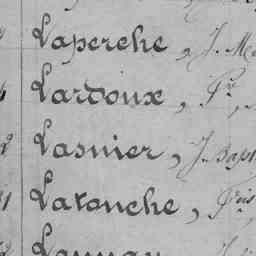 Laperche, J. M
Lardoux, Fr.
Lasnier, J. Bapt
Latouche, Fçois
Launay